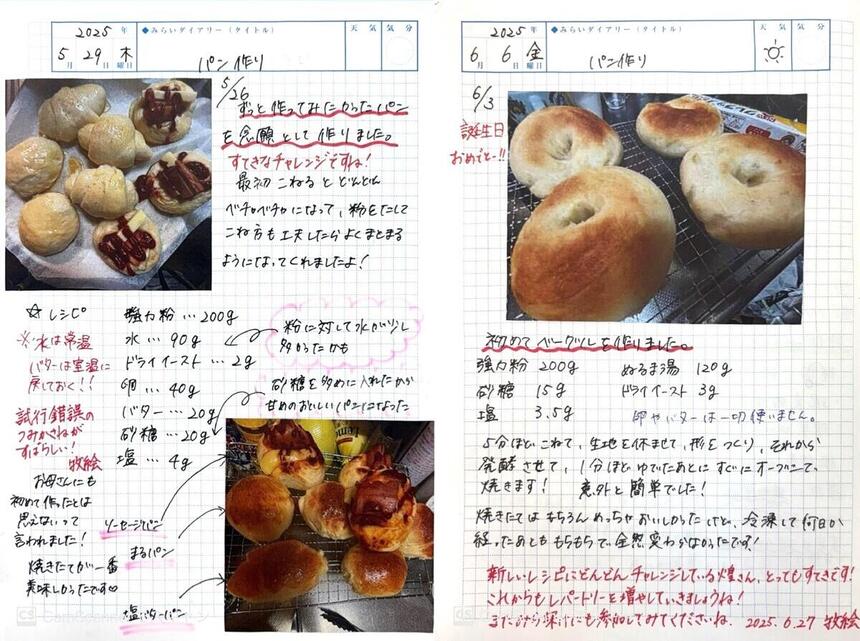 2025年
5月29日木曜日
◆みらいダイアリー(タイトル)
パン作り
天気
気分
5/26
ずっと作ってみたかったパン
を念願として作りました。
すてきなチャレンジですね!
最初こねるとどんどん
ベチャベチャになって、粉をたして
こね方も工夫したらよくまとまる
ようになってくれましたよ!
☆レシピ
※水は常温
バターは室温に
戻しておく!!
強力粉…200g
水…90g
ドライイースト…2g
卵…40g
バター…20g
砂糖…20g
塩…4g
粉に対して水が少し
多かったかも
砂糖を多めに入れたから
甘めのおいしいパンになった
試行錯誤の
つみかさねが
すばらしい!
牧絵
お母さんにも
初めて作ったとは
思えないって
言われました!
焼きたてが一番
美味しかったです♡
ソーセージパン
まるパン
塩バターパン
CS CamScanner
2025年
6月6日金曜日
◆みらいダイアリー(タイトル)
パン作り
天気
気分
6/3
誕生日
おめでとー!!
初めてベーグルを作りました。
強力粉 200g ぬるま湯 120g
砂糖 15g ドライイースト 3g
塩 3.5g 卵やバターは一切使いません。
5分ほどこねて、生地を休ませて、形をつくり、それから
発酵させて、1分ほどゆでたあとにすぐにオーブンで
焼きます! 意外と簡単でした!
焼きたてはもちろんめっちゃおいしかったけど、冷凍して何日か
経ったあともモちもちで全然変わらなかったです!
新しいレシピにどんどんチャレンジしている煌さん、とってもすてきです!
これからもレパートリーを増やしていきましょうね!
またみらい深けにも参加してみてくださいね。 2025.6.27 牧絵
CS